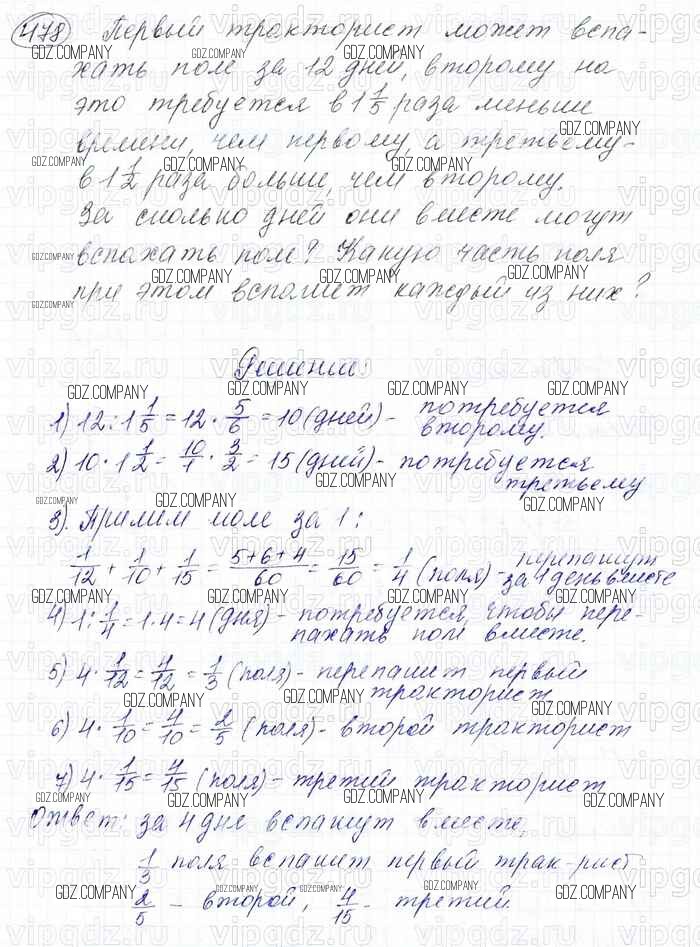 478 Первый тракторист может вспа-
хать поле за 12 дней, второму на
это требуется в 1 1/5 раза меньше
времени, чем первому, а третьему -
в 1 1/2 раза больше, чем второму.
За сколько дней они вместе могут
вспахать поле? Какую часть поля
при этом вспашет каждый из них?
Решение:
1) 12 : 1 1/5 = 12 · 5/6 = 10 (дней) - потребуется
второму.
2) 10 · 1 1/2 = 10/1 · 3/2 = 15 (дней) - потребуется
третьему
3). Примем поле за 1:
1/12 + 1/10 + 1/15 = (5+6+4)/60 = 15/60 = 1/4 (поля) - перепашут
за 1 день вместе
4) 1 : 1/4 = 1 · 4 = 4 (дня) - потребуется, чтобы пере-
пахать поле вместе.
5) 4 · 1/12 = 4/12 = 1/3 (поля) - перепашет первый
тракторист
6) 4 · 1/10 = 4/10 = 2/5 (поля) - второй тракторист
7) 4 · 1/15 = 4/15 (поля) - третий тракторист
Ответ: за 4 дня вспашут вместе,
1/3 поля вспашет первый трак-рист
2/5 - второй, 4/15 - третий.
GDZ.COMPANY
vipgdz.ru